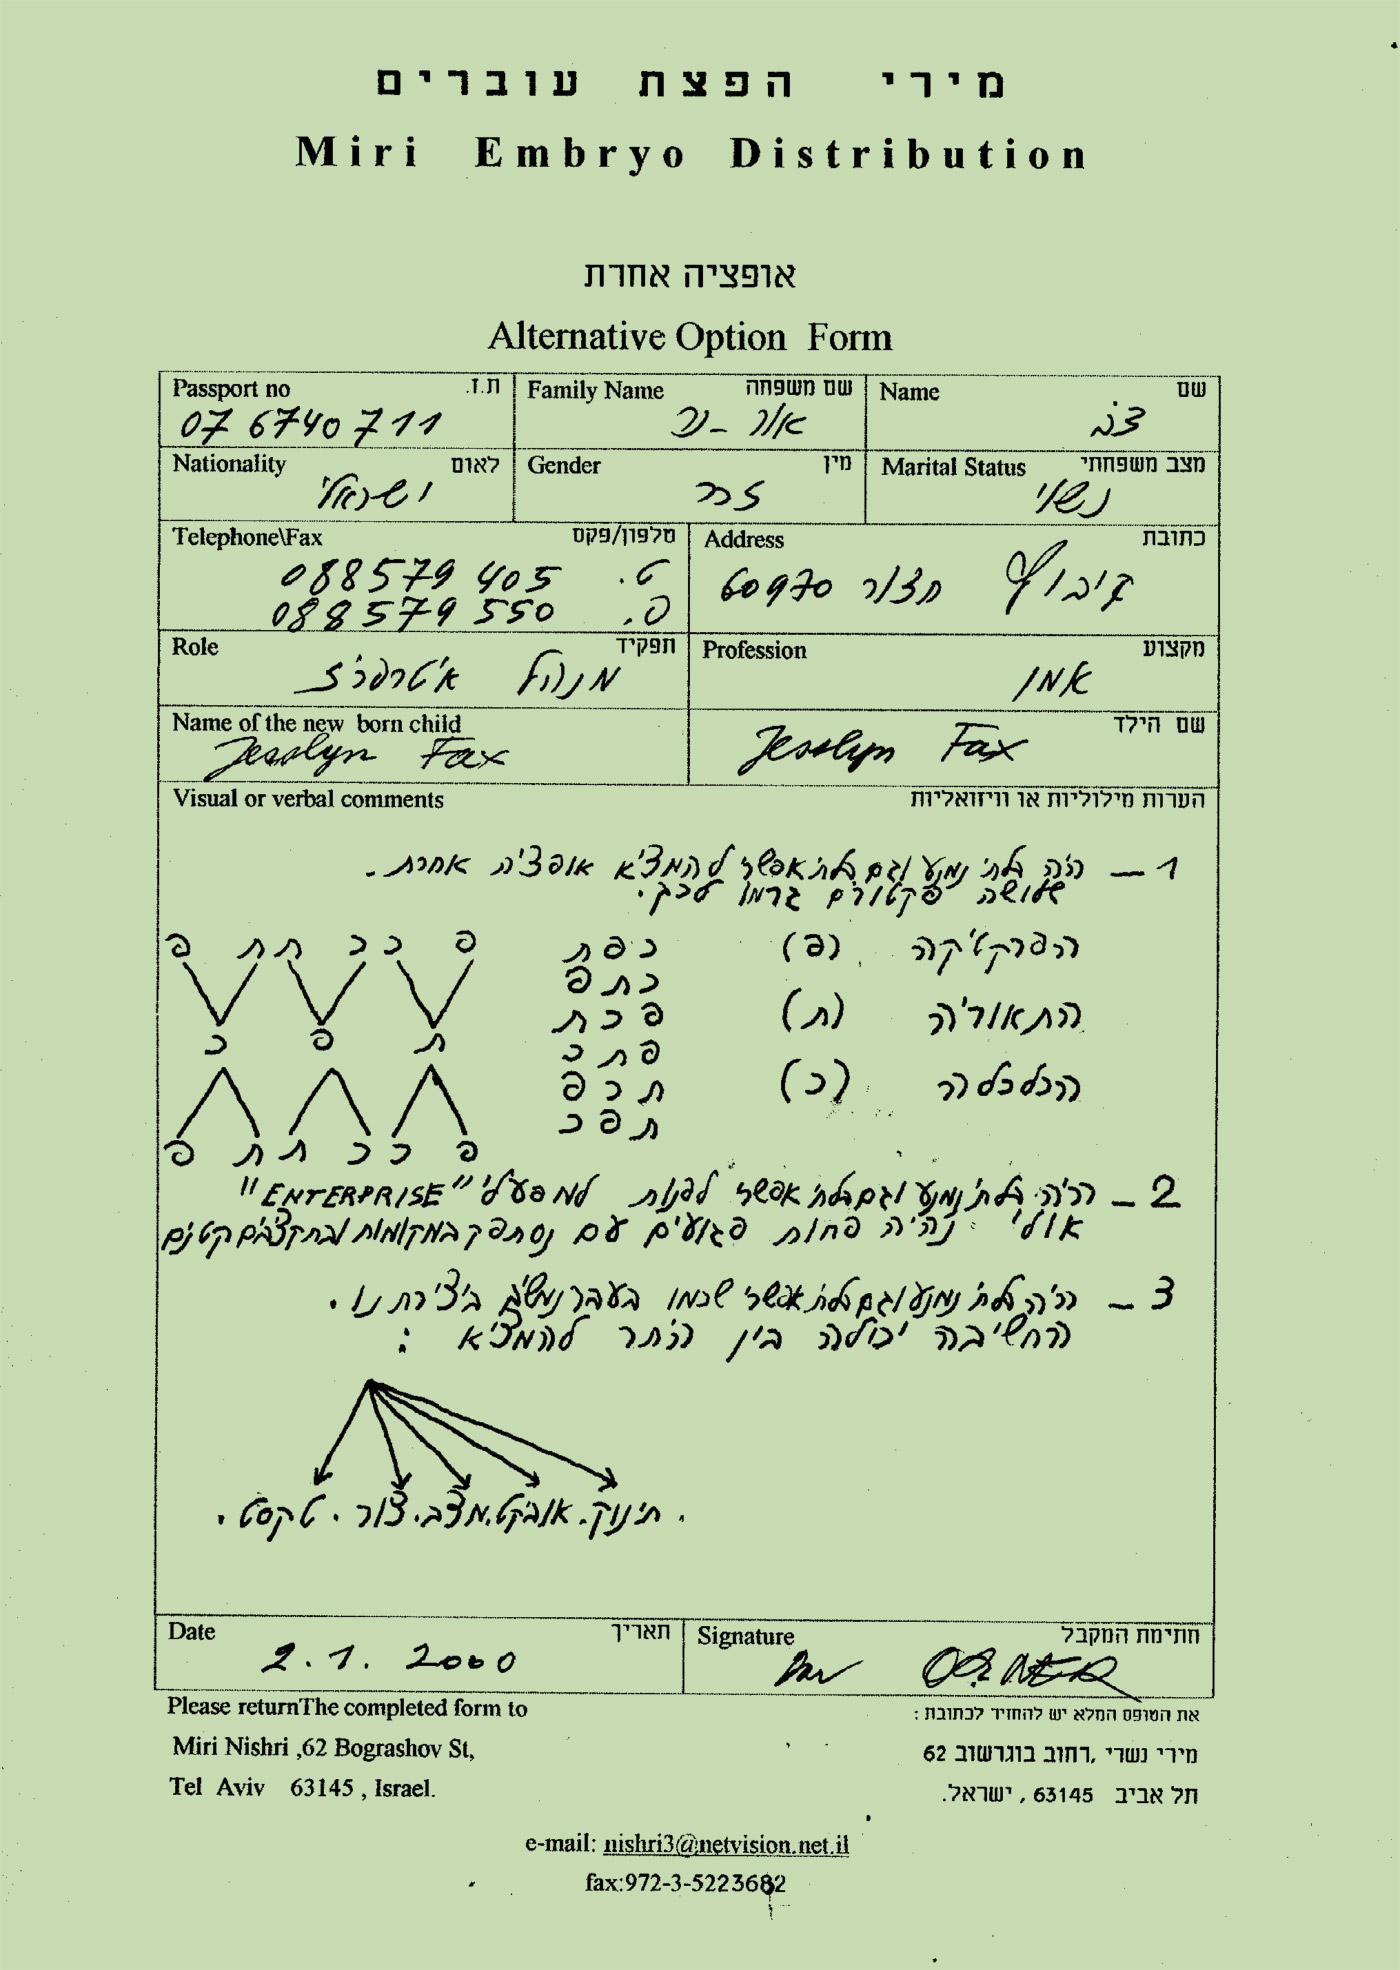 מירי הפצת עוברים
Miri Embryo Distribution
אופציה אחרת
Alternative Option Form
Passport no ת.ז.
07 6740 711
Family Name שם משפחה
אור - נר
Name שם
צבי
Nationality לאום
ישראלי
Gender מין
זכר
Marital Status מצב משפחתי
נשוי
Telephone\Fax טלפון/פקס
ט. 088579 405
פ. 088579 550
Address כתובת
קיבוץ חצור 60970
Role תפקיד
מנהל
Profession מקצוע
אמן
Name of the new born child
Jesslyn Fax
שם הילד
Jesslyn Fax
Visual or verbal comments הערות מילוליות או וויזואליות
1 – היה בלתי נמנע וגם בלתי אפשרי להמציא אופציה אחרת.
שלושה פקטורים גרמו לכך.
הפרקטיקה (פ)
התאוריה (ת)
הכלכלה (כ)
כ פ ת
כ ת פ
פ כ ת
פ ת כ
ת כ פ
ת פ כ
פ כ כ ת ת פ
ת פ כ
פ כ כ ת ת פ
2 – היה בלתי נמנע וגם בלתי אפשרי לפנות למפעלי "ENTERPRISE"
אולי נהיה פחות פגועים עם נסתפק במקומות ובתקציבים קטנים
3 – היה בלתי נמנע וגם בלתי אפשרי שכמו בעבר נמשיך ביצירתנו.
החשיבה יכולה בין היתר להמציא :
תינוק. אובקט. מצב. ציור. טקסט.
Date תאריך
2.1.2000
Signature חתימת המקבל
Please returnThe completed form to
Miri Nishri ,62 Bograshov St,
Tel Aviv 63145 , Israel.
את הטופס המלא יש להחזיר לכתובת :
מירי נשרי ,רחוב בוגרשוב 62
תל אביב 63145 , ישראל.
e-mail: nishri3@netvision.net.il
fax:972-3-5223682